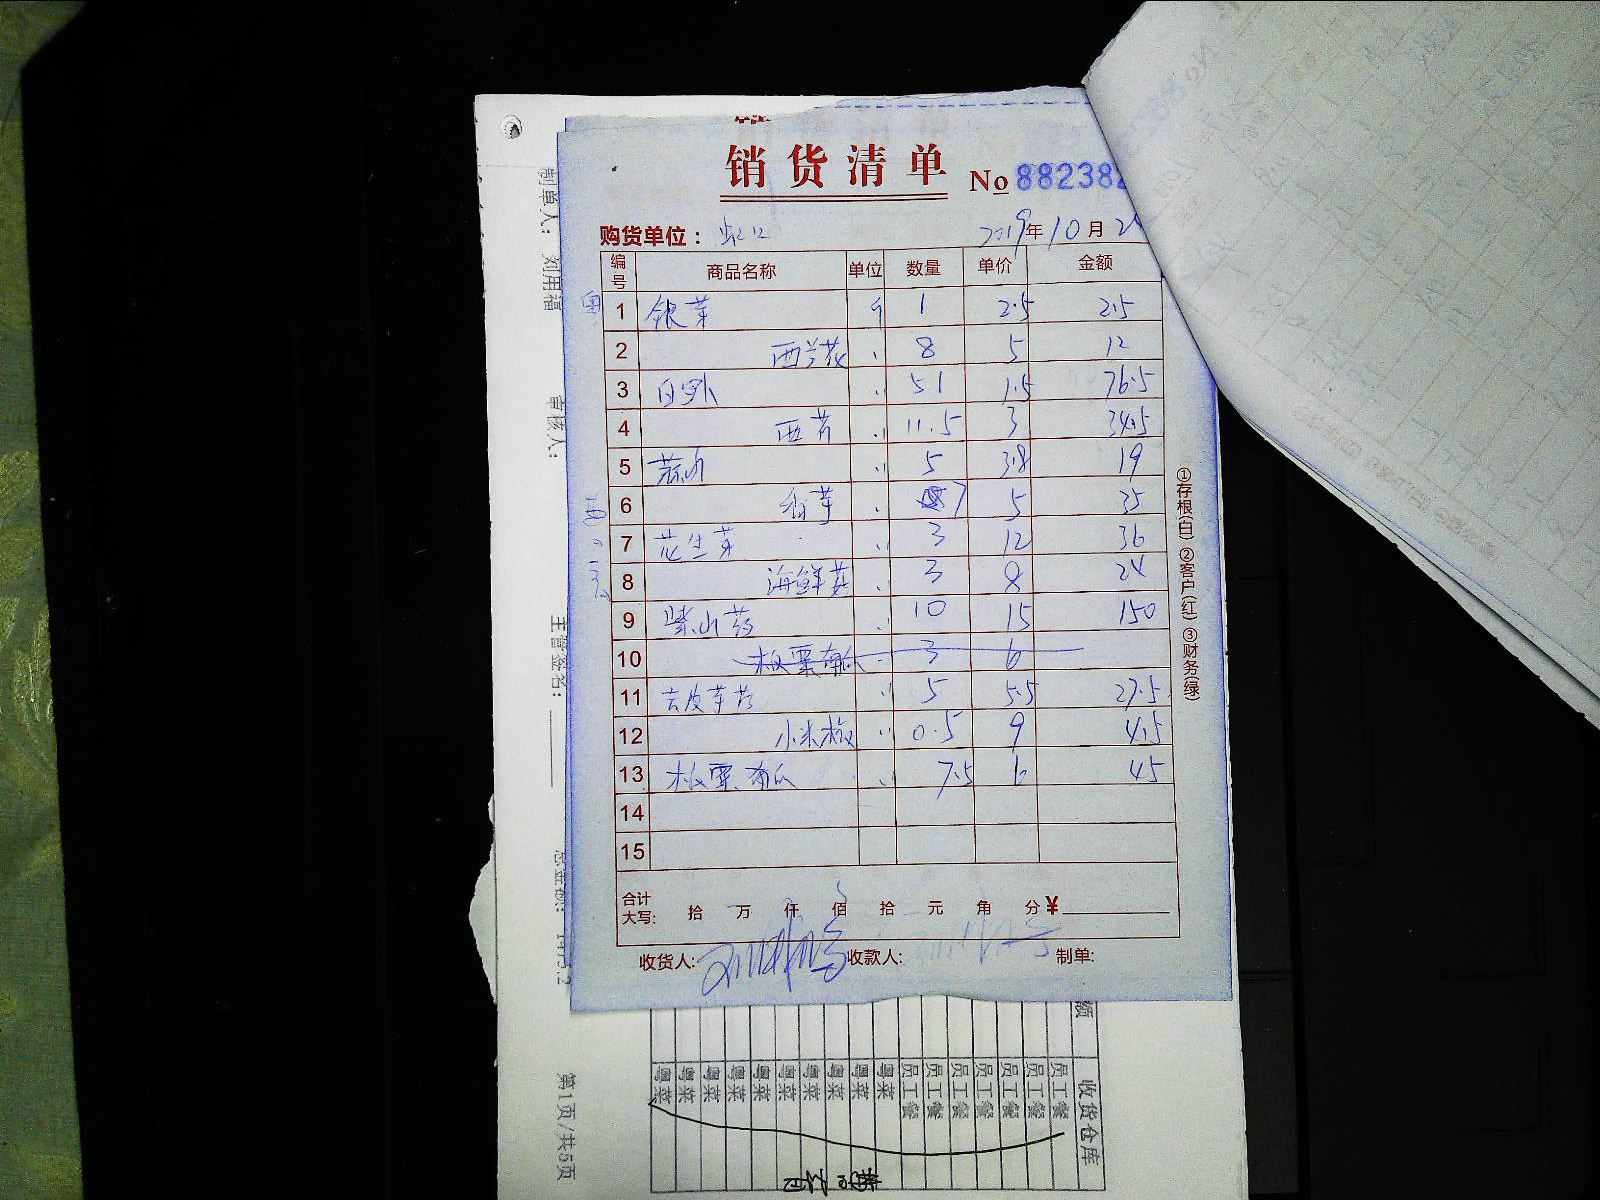 销货清单 No 88238
购货单位： 虹口 2019年10月2
编号 商品名称 单位 数量 单价 金额
1 银芽 斤 1 2.5 2.5
2 西兰花 〃 8 5 12
3 白 〃 51 1.5 76.5
4 西芹 〃 11.5 3 34.5
5 〃 5 3.8 19
6 香芋 〃 7 5 35
7 花生芽 〃 3 12 36
8 海鲜菇 〃 3 8 24
9 紫山药 〃 10 15 150
10 板栗南瓜 〃 3 6
11 去皮芋艿 〃 5 5.5 27.5
12 小米椒 〃 0.5 9 4.5
13 板栗南瓜 〃 7.5 6 45
14
15
合计
大写: 拾 万 仟 佰 拾 元 角 分 ¥
收货人: 收款人: 制单:
①存根(白) ②客户(红) ③财务(绿)
制单人: 刘用福
审核人:
主管签名:
第1页/共5页
额
收货仓库
员工餐
员工餐
员工餐
员工餐
员工餐
员工餐
员工餐
粤菜
粤菜
粤菜
粤菜
粤菜
粤菜
粤菜
粤菜
粤菜
粤菜